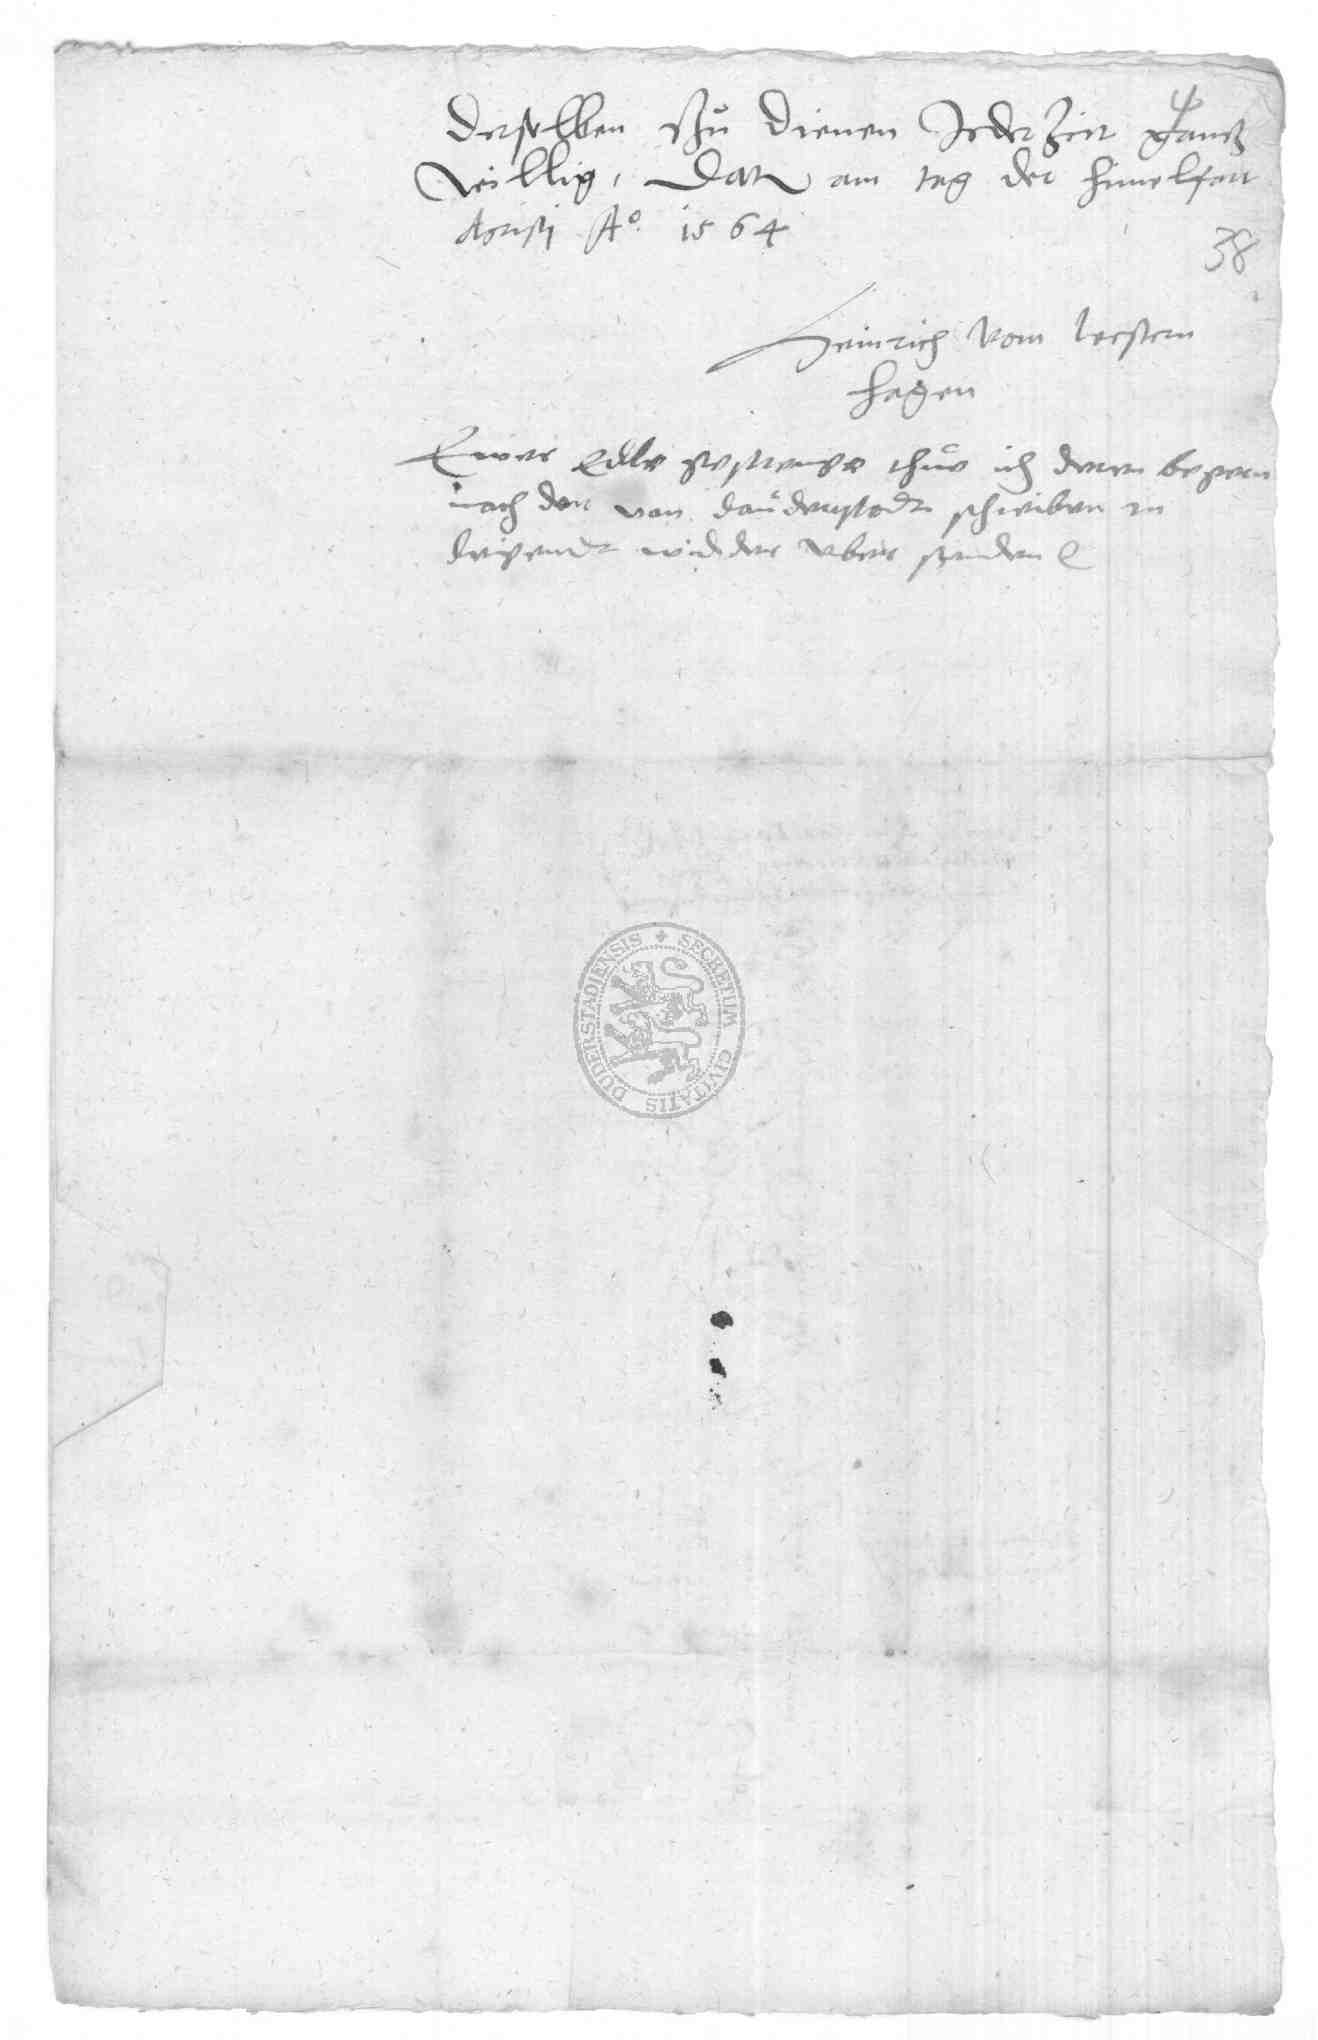 derselben Zů dienen Jeder Zeit gantz
willig, Dat am tag der himelfart
christi Aº. 1564
38
Heinrich vom western
hagen
Ewer Edle gestrenge thue ich deren begern
nach der von dauderstadt schreiben in
ligendt widder uber senden
SECRETUM CIVITATIS DUDERSTADIENSIS